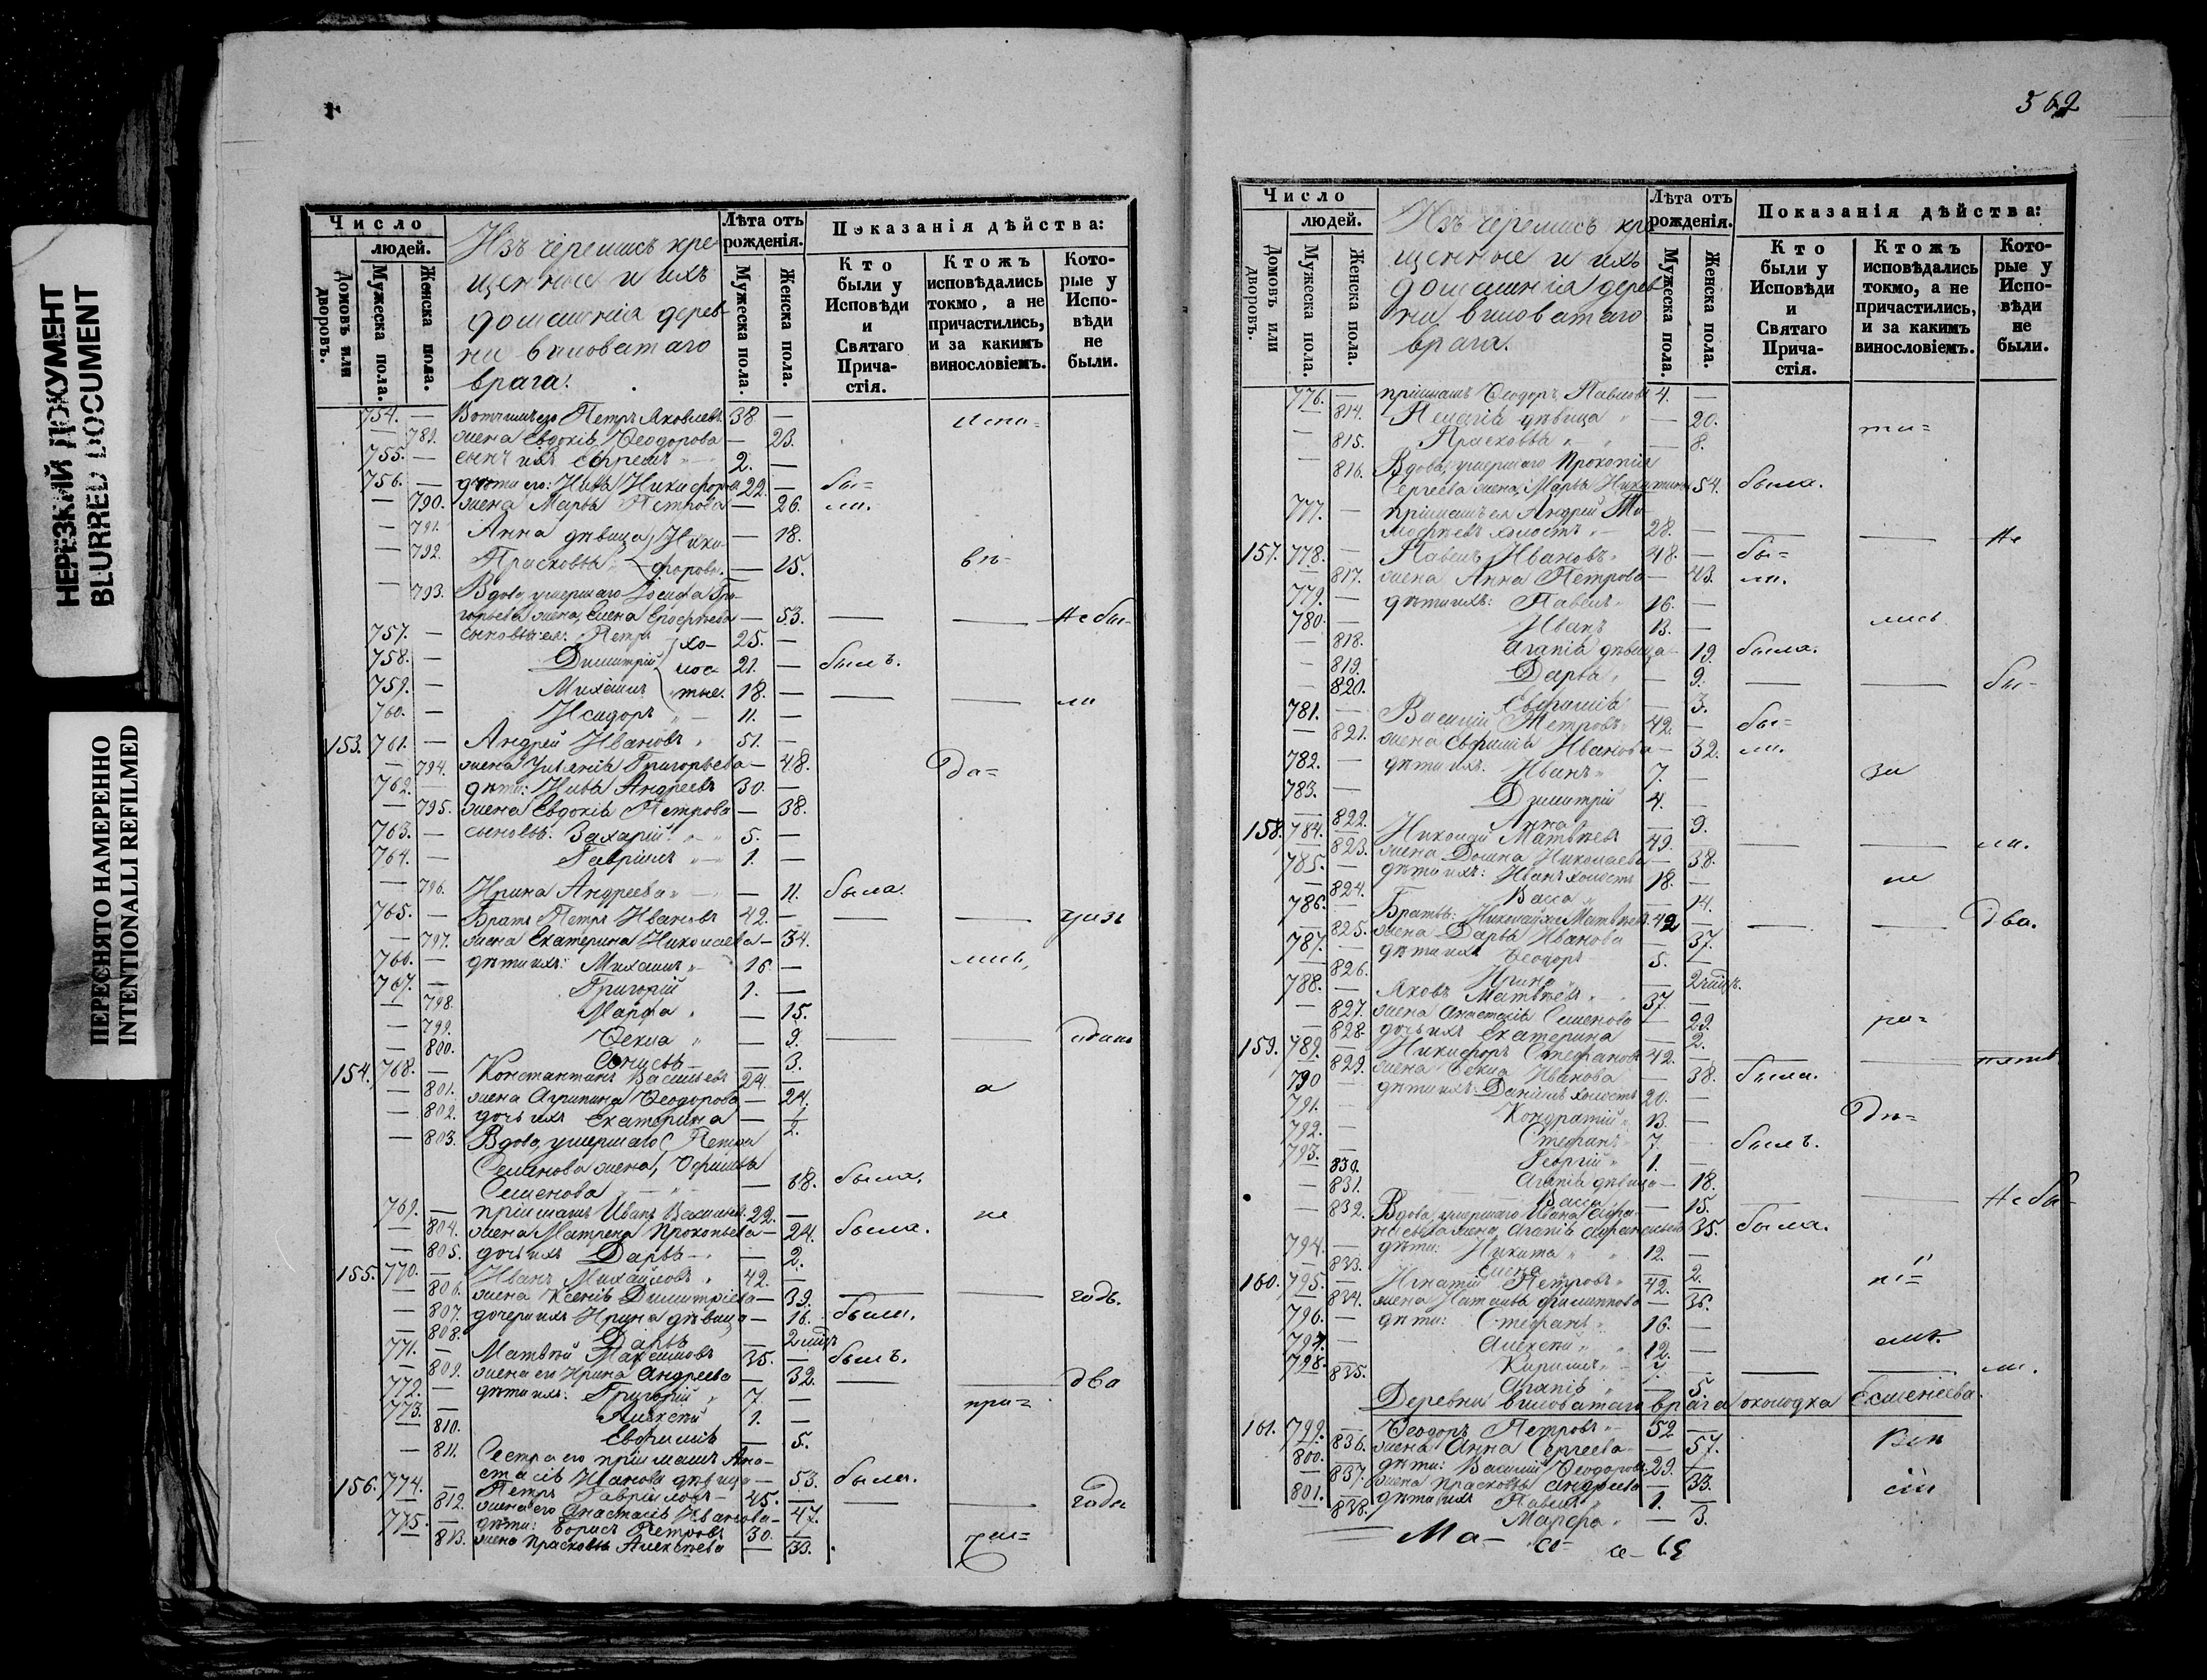 НЕРЕЗКИЙ ДОКУМЕНТ
BLURRED DOCUMENT
ПЕРЕСНЯТО НАМЕРЕННО
INTENTIONALLI REFILMED
Число
людей.
Домовъ или дворовъ.
Мужеска пола.
Женска пола.
Изъ черемисъ кре-
щенные и ихъ
домашнія дерев-
ни Виловатаго
врага.
Лѣта отъ рожденія.
Мужеска пола.
Женска пола.
Показанія дѣйства:
Кто были у Исповѣди и Святаго Прича-стія.
Ктожъ исповѣдались токмо, а не причастились, и за какимъ винословіемъ.
Кото-рые у Испо-вѣди не были.
754. — Петръ Яковлевъ 38. —
— 789. жена Евдокія Ѳеодорова — 23.
755. — сынъ ихъ Ефремъ 2. —
756. — Никифоровъ 22. — бы=
— 790. жена Марья Петрова — 26. ли.
— 791. Анна дѣвица Ники- — 18.
— 792. Прасковья форовы. — 15.
— 793. Вдова, умершаго Іосифа Гри-
горьева жена, Елена Ерофѣева — 53. — — Не бы-
757. — сыновья ея: Петръ хо- 25. —
758. — Димитрій лос- 21. — былъ.
759. — Михаилъ тые. 18. — — — ли
760. — Исидоръ 11. —
153. 761. — Андрей Ивановъ 51. —
— 794. жена Ульянія Григорьева — 48. да=
762. — дѣти: Андреевъ 30. —
— 795. жена Евдокія Петрова — 38.
763. — сыновья: Захарій 5. —
764. — Гавріилъ 1. —
— 796. Ирина Андреева — 11. была.
765. — Братъ Петръ Ивановъ 42. — — —
— 797. жена Екатерина Николаева — 34.
766. — дѣти ихъ: Михаилъ 16. — лись,
767. — Григорій 1. —
— 798. Марфа — 15.
— 799. Ѳекла — 9. — — одинъ
— 800. — 3.
154. 768. — Константинъ Васильевъ 24. —
— 801. жена Агрипина Ѳеодорова — 24. а
— 802. дочь ихъ Екатерина — 2.
— 803. Вдова, умершаго Петра
Семенова жена,
Семенова — 68. была,
769. — пріимашъ Иванъ Васильевъ 22. — не
— 804. жена Матрена Прокопьева — 24. была.
— 805. дочь ихъ Дарья — 2.
155. 770. — Иванъ Михайловъ 42. —
— 806. жена Ксенія Димитріева — 39. — — годъ.
— 807. дочери ихъ Ирина дѣвица — 16. были.
— 808. Дарья —
771. — Матвѣй Максимовъ 35. — былъ.
— 809. жена его Ирина Андреева — 32. — — два
772. — дѣти ихъ: Григорій 7. —
773. — Алексѣй 1. — при=
— 810. Евфимія — 5.
— 811. Сестра его пріимашъ Ана-
стасія Иванова дѣвица — 53. была.
156. 774. — Петръ Гавріиловъ 45. — — — года
— 812. жена его Анастасія Иванова — 47.
775. — дѣти: Борисъ Петровъ 30. —
— 813. жена Прасковья Алексѣева — 33.
562
Число
людей.
Домовъ или дворовъ.
Мужеска пола.
Женска пола.
Изъ черемисъ кре-
щенные и ихъ
домашнія дерев-
ни Виловатаго
врага.
Лѣта отъ рожденія.
Мужеска пола.
Женска пола.
Показанія дѣйства:
Кто были у Исповѣди и Святаго Прича-стія.
Ктожъ исповѣдались токмо, а не причастились, и за какимъ винословіемъ.
Кото-рые у Испо-вѣди не были.
776. — пріимашъ Ѳеодоръ Павловъ 4. —
— 814. Пелагія дѣвица — 20.
— 815. Прасковья — 8. ти=
— 816. Вдова, умершаго Прокопія
Сергеева жена, Марья Никитина 54. была.
777. — пріимашъ ея Андрей Ти-
мофѣевъ холостъ 28. — — — Не
157. 778. — Павелъ Ивановъ 48. — бы=
— 817. жена Анна Петрова — 43. ли.
779. — дѣти ихъ: Павелъ 16. —
780. — Иванъ 13. — лись
— 818. Агапія дѣвица — 19. была.
— 819. Дарья — 9.
— 820. Евфимія — 3. — — бы-
781. — Василій Петровъ 42. — бы=
— 821. жена Евфимія Иванова — 32. ли.
782. — дѣти ихъ: Иванъ 7. — за
783. — Димитрій 4. —
— 822. Анна — 9.
158. 784. — Николай Матвѣевъ 49. — — — ли.
— 823. жена Домна Николаева — 38.
785. — дѣти ихъ: Иванъ холостъ 18. — не
— 824. Васса — 14.
786. — Братья: Николай же Матвѣевъ 42 — — — два.
— 825. жена Дарья Иванова — 37.
787. — дѣти ихъ Ѳеодоръ 5. —
— 826. Ирина —
788. — Яковъ Матвѣевъ 37. —
— 827. жена Анастасія Семенова — 29. ра=
— 828. дочь ихъ Екатерина — 2.
159. 789. — Никифоръ Стефановъ 42. — — — пять
— 829. жена Ѳекла Иванова — 38. была.
790 — дѣти ихъ: Даніилъ холостъ 20. —
791. — Кондратій 13. —
792. — Стефанъ 7. — былъ.
793. — Георгій 1. —
— 830. Агапія дѣвица — 18.
— 831. Васса — 15. — — Не бы-
— 832. Вдова, умершаго Ивана Афа-
насьева жена, Агапія Афанасьева 35. была.
794. — дѣти: Никита 12. —
— 833. Елена — 2.
160. 795. — Игнатій Петровъ 42. —
— 834. жена Наталья Филиппова — 36.
796. — дѣти: Стефанъ 16. —
797. — Алексѣй 12. —
798. — Кирилъ 7. — — ли.
— 835. Агапія — 5.
Деревни Виловатаго врага околодка
161. 799. — Ѳеодоръ Петровъ 52 —
— 836. жена Анна Сергеева — 57.
800. — дѣти: Василій Ѳеодоровъ 29. —
— 837. жена Прасковья Андреева — 33.
801. — дѣти ихъ Павелъ 1. —
— 838. Марфа — 3.